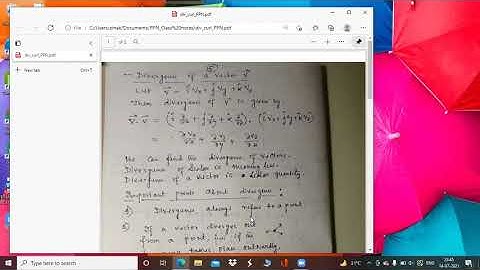 div_curl_PPN.pdf
C:/Users/pmak/Documents/PPN_Class%20notes/div_curl_PPN.pdf
div_curl_PPN.pdf
New tab
1 of 5
Divergence of a vector V⃗
Let V⃗ = îVx + ĵVy + k̂Vz
Then divergence of V⃗ is given by
∇⃗.V⃗ = (î ∂/∂x + ĵ ∂/∂y + k̂ ∂/∂z).(îVx + ĵVy + k̂Vz)
= ∂Vx/∂x + ∂Vy/∂y + ∂Vz/∂z
We can find the divergence of vectors.
Divergence of Scalar is meaningless.
Divergence of a vector is a scalar quantity.
Important points About divergence :
1) Divergence always refers to a point.
2) If a vector diverges out
from a point, i.e. if
takes place outwardly,
Type here to search
31°C
ENG
20:45
14-07-2021